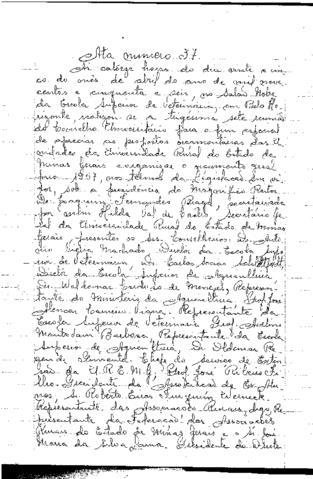 Ata número 37
Às catorze horas do dia vinte e cin
co do mês de abril do ano de mil nove
centos e cinquenta e seis, no Salão Nobre
da Escola Superior de Veterinária, em Belo Ho-
rizonte, realizou-se a trigésima sete reunião
do Conselho Universitário para o fim especial
de apreciar as propostas orçamentárias das U
nidades da Universidade Rural do Estado de
Minas Gerais e organizar o orçamento
para 1957, nos termos da Legislação em vi
gor, sob a presidência do Magnífico Reitor
Dr. Joaquim Fernandes Braga, secretariada
por mim Hilda Val de Castro, secretária ge
ral da Universidade Rural do Estado de Minas
Gerais, presentes os srs. Conselheiros: Dr.
Vieira Machado Diretor da Escola Supe
rior de Veterinária, Dr. Carlos Socias
Diretor da Escola Superior de Agricultura,
Dr. Waldemar de Menezes, Represen
tante do Ministério da Agricultura, Prof. José
Alencar Carneiro Viana, Representante da
Escola Superior de Veterinária, Prof.
Barbosa, Representante da Escola
Superior de Agricultura, Dr.
Chefe do Serviço de Exten
são da U.R.E.M.G., Prof. José Ribeiro Fi
lho, Presidente da Associação de Ex-Alu
nos, Sr. Roberto Werneck,
Representante das Associações Rurais, digo, Re
presentante da Federação das Associações
Rurais do Estado de Minas Gerais e o Sr. José
Maria da Silva Presidente do Direto